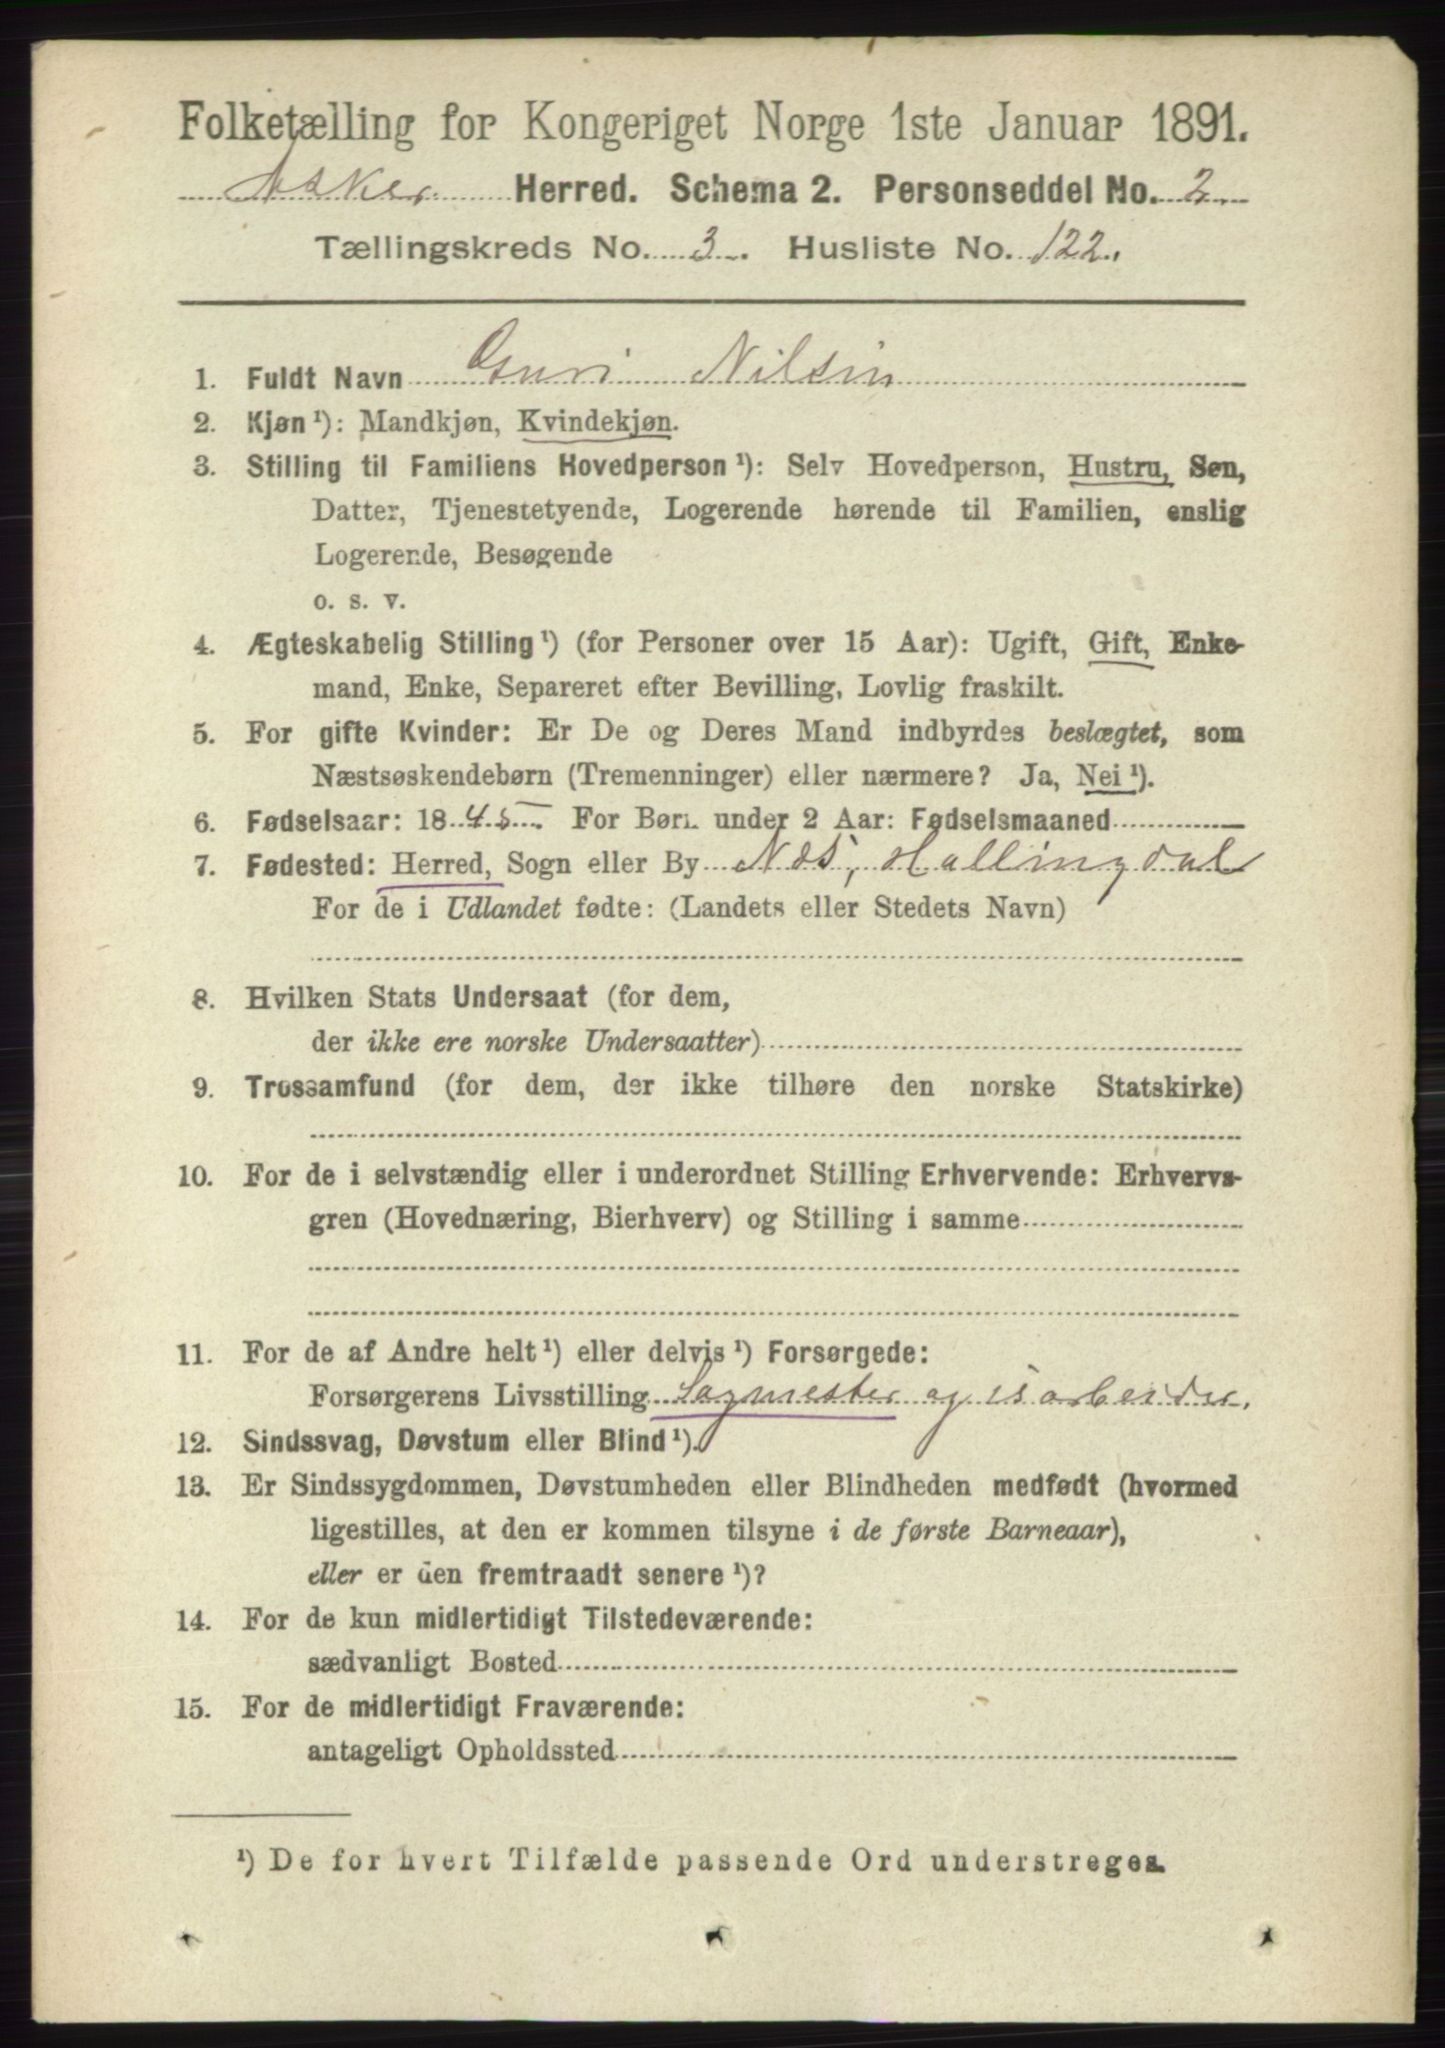 Folketælling for Kongeriget Norge 1ste Januar 1891.
Asker Herred. Schema 2. Personseddel No. 2.
Tællingskreds No. 3. Husliste No. 122.
1. Fuldt Navn Guri Nilsin
2. Kjøn ¹): Mandkjøn, Kvindekjøn.
3. Stilling til Familiens Hovedperson ¹): Selv Hovedperson, Hustru, Søn,
Datter, Tjenestetyende, Logerende hørende til Familien, enslig
Logerende, Besøgende
o. s. v.
4. Ægteskabelig Stilling ¹) (for Personer over 15 Aar): Ugift, Gift, Enke-
mand, Enke, Separeret efter Bevilling, Lovlig fraskilt.
5. For gifte Kvinder: Er De og Deres Mand indbyrdes beslægtet, som
Næstsøskendebørn (Tremenninger) eller nærmere? Ja, Nei ¹).
6. Fødselsaar: 1845. For Børn under 2 Aar: Fødselsmaaned
7. Fødested: Herred, Sogn eller By Næs, Hallingdal
For de i Udlandet fødte: (Landets eller Stedets Navn)
8. Hvilken Stats Undersaat (for dem,
der ikke ere norske Undersaatter)
9. Trossamfund (for dem, der ikke tilhøre den norske Statskirke)
10. For de i selvstændig eller i underordnet Stilling Erhvervende: Erhvervs-
gren (Hovednæring, Bierhverv) og Stilling i samme
11. For de af Andre helt ¹) eller delvis ¹) Forsørgede:
Forsørgerens Livsstilling Sagmester og isarbeider.
12. Sindssvag, Døvstum eller Blind ¹).
13. Er Sindssygdommen, Døvstumheden eller Blindheden medfødt (hvormed
ligestilles, at den er kommen tilsyne i de første Barneaar),
eller er den fremtraadt senere ¹)?
14. For de kun midlertidigt Tilstedeværende:
sædvanligt Bosted
15. For de midlertidigt Fraværende:
antageligt Opholdssted
¹) De for hvert Tilfælde passende Ord understreges.